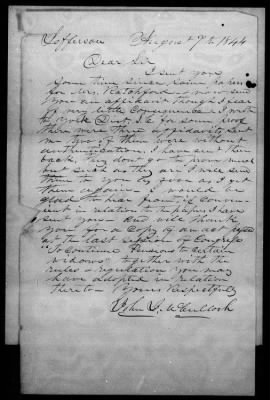 Jefferson August 9th 1844
Dear Sir
I sent you
Some time since Some papers
for Mrs. Ratchford I now send
you an affidavit though I fear
of very little Consequence I wrote
to York Dist. S.C. for some proof
there were three affidavits sent
me two of them were without
authentication I have sent them
back they dont go to prove much
but such as they are I will send
them to you by given as I get
them again I would be
glad to hear from if conven
ient in relation to the papers I have
sent you And will thank
you for a Copy of an act passed
at the last session of Congress
to Continue Pensions to certain
widows together with the
rules & regulation you may
have adopted in relation
thereto Yours Respectfully
John S. McCulloch